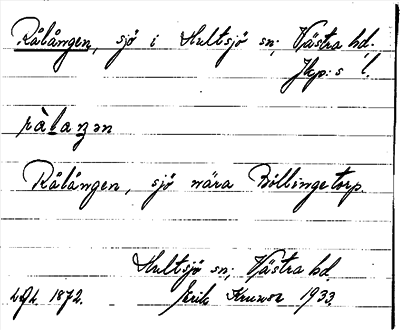 Rålången, sjö i Hultsjö sn; Västra hd.
Jkp:s l.
rà̊laŋən
Rålången, sjö nära Böllingetorp.
Hultsjö sn; Västra hd.
1872. Erik 1933.